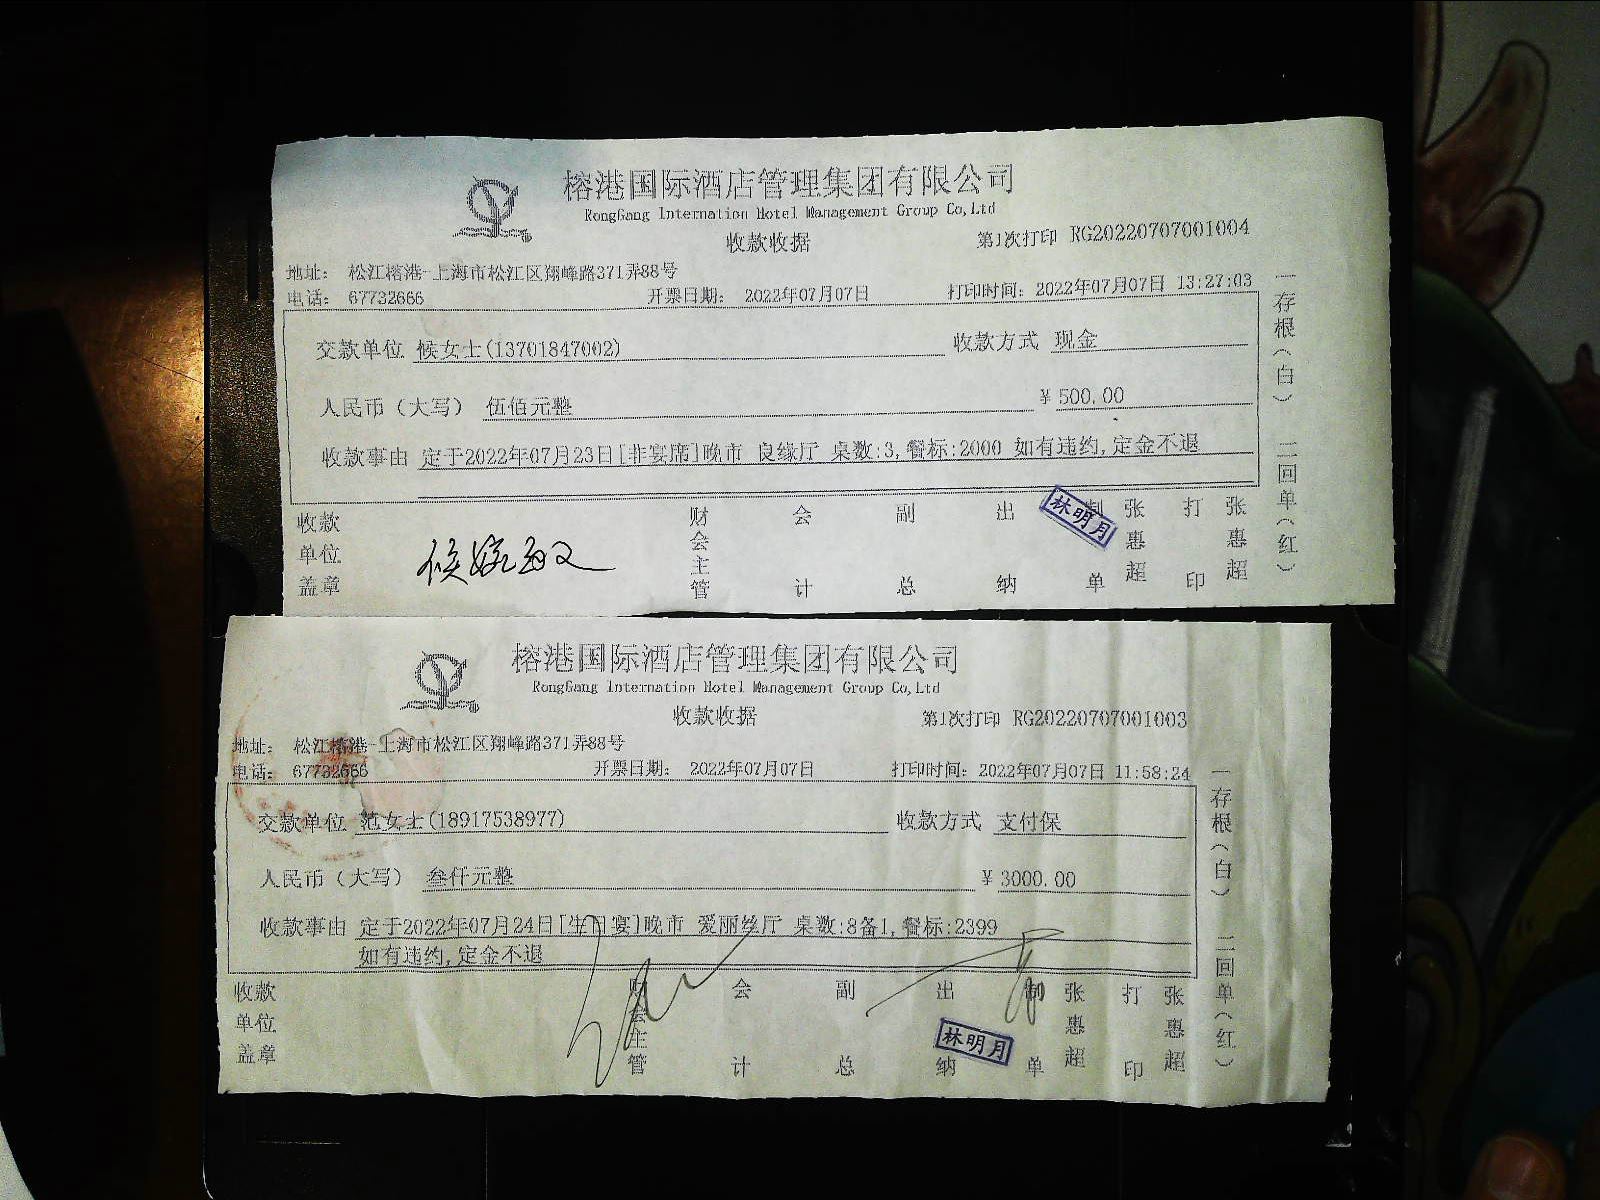 榕港国际酒店管理集团有限公司
RongGang Internation Hotel Management Group Co,Ltd
收款收据 第1次打印 RG20220707001004
地址: 松江榕港-上海市松江区翔峰路371弄88号
电话: 67732666 开票日期: 2022年07月07日 打印时间: 2022年07月07日 13:27:03
交款单位 候女士(13701847002) 收款方式 现金
人民币（大写） 伍佰元整 ¥ 500.00
收款事由 定于2022年07月23日[非宴席]晚市 良缘厅 桌数:3,餐标:2000 如有违约,定金不退
收款单位盖章 财会主管 会计 副总 出纳 制单 张惠超 打印 张惠超
林明月
一存根（白） 二回单（红）
榕港国际酒店管理集团有限公司
RongGang Internation Hotel Management Group Co,Ltd
收款收据 第1次打印 RG20220707001003
地址: 松江榕港-上海市松江区翔峰路371弄88号
电话: 67732666 开票日期: 2022年07月07日 打印时间: 2022年07月07日 11:58:24
交款单位 范女士(18917538977) 收款方式 支付保
人民币（大写） 叁仟元整 ¥ 3000.00
收款事由 定于2022年07月24日[生日宴]晚市 爱丽丝厅 桌数:8备1,餐标:2399
如有违约,定金不退
收款单位盖章 财会主管 会计 副总 出纳 制单 张惠超 打印 张惠超
林明月
一存根（白） 二回单（红）